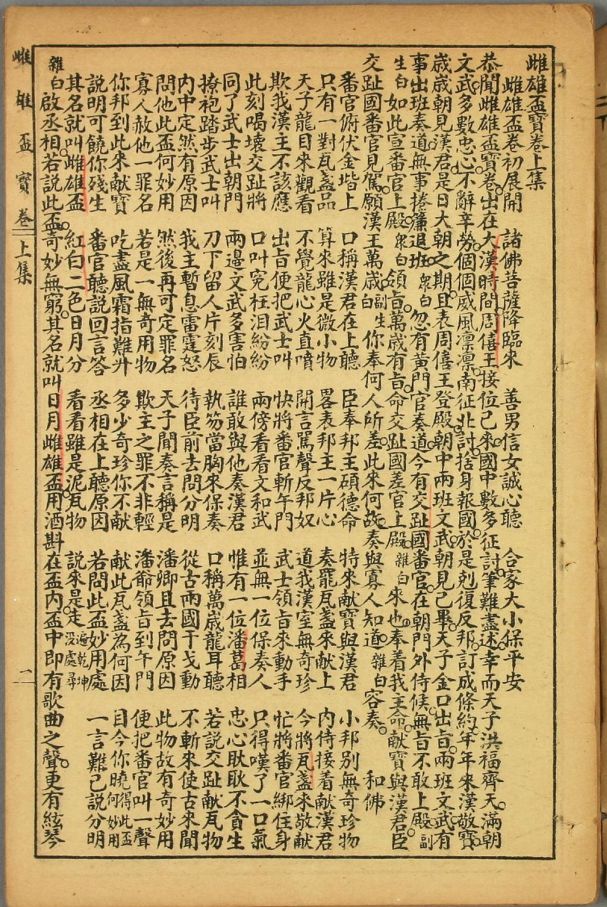 雌雄盃寶卷上集
雌雄盃卷初展開　諸佛菩薩降臨來　善男信女誠心聽　合家大小保平安
恭聞雌雄盃寶卷。出在大漢時間。周僖王接位已來。國中數多征討。筆難盡述。幸而天子洪福齊天。滿朝
文武多數忠心。不辭辛勞。個個威風凛凛。南征北討。捨身報國。於是剋復反邦。訂成條約。年年來漢敬寶。
歲歲朝見漢君。是日大朝之期。且表周僖王登殿。朝中兩班文武朝見已畢。天子金口出旨。兩班文武有
事出班奏道。無事捲簾退班。衆白忽有黃門官奏道。今有交趾國番官。在朝門外侍候。無旨不敢上殿。副
生白如此宣番官上殿。衆白領旨萬歲有旨。命交趾國差官上殿。雜白來也。奉着我主命。獻寶與漢君。臣
交趾國番官見駕。願漢王萬歲。副生白你奉何人所差。此來何故。奏與寡人知道。雜白容奏。　和佛
番官俯伏金堦上　口稱漢君在上聽　臣奉邦主碩德命　特來獻寶與漢君　小邦別無奇珍物
只有一對瓦盞品　算來雖是微小物　畧表邦主一片心　奏罷瓦盞來獻上　內侍接着獻漢君
天子龍目來觀看　不覺龍心火直噴　開言罵聲反邦奴　道我漢室無奇珍　今將瓦盞來敬獻
欺我漢王不該應　出旨便把武士叫　快將番官斬午門　武士領旨來動手　忙將番官綁住身
此刻喝壞交趾將　口叫冤枉泪紛紛　兩傍看看文和武　並無一位保奏人　只得嘆了一口氣
同了武士出朝門　兩邊文武多害怕　誰敢與他奏漢君　惟有一位潘葛相　忠心耿耿不貪生
撩袍踏步武士叫　刀下留人片刻辰　執笏當胸來保奏　口稱萬歲龍耳聽　若說交趾獻瓦物
內中定然有原因　我主暫息雷霆怒　待臣前去問分明　從古兩國干戈動　不斬來使古來聞
問他此盃何妙用　然後再可定罪名　天子聞奏言稱是　潘卿且去問原因　此物故有奇妙用
寡人赦他一罪名　若是一無奇用物　欺主之罪不非輕　潘爺領旨到午門　便把番官叫一聲
你邦到此來獻寶　吃盡風霜指難升　多少奇珍你不獻　獻此瓦盞為何因　目今你曉得此盃何妙用
說明可饒你殘生　番官聽說回言答　丞相在上聽原因　若問此盃妙用處　一言難已說分明
其名就叫雌雄盃　紅白二色日月分　看看雖是泥瓦物　說來是走遍乾坤沒處尋
雜白啟丞相。若說此盃。奇妙無窮。其名就叫日月雌雄盃。用酒斟在盃內。盃中即有歌曲之聲。更有絃琴
雌雄盃寶卷　上集　二